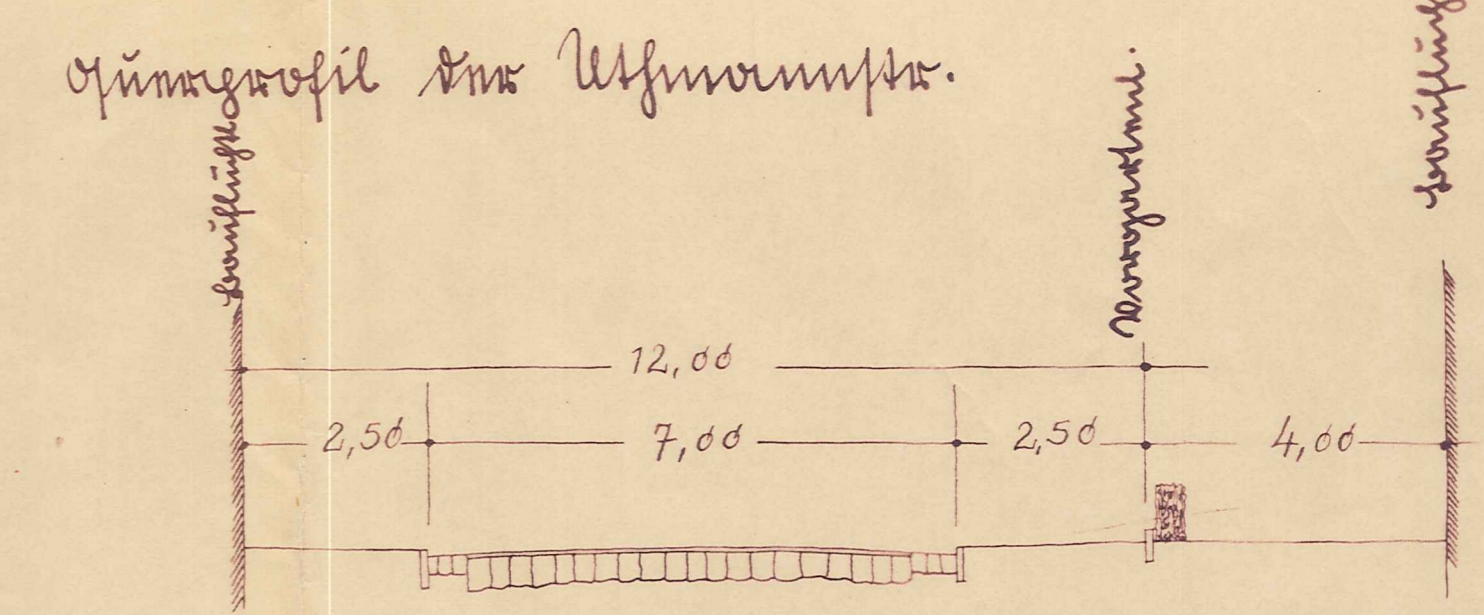 Querprofil der Uthmannstr.
Bauflucht
Vorgartenl.
12,00
2,50 7,00 2,50 4,00